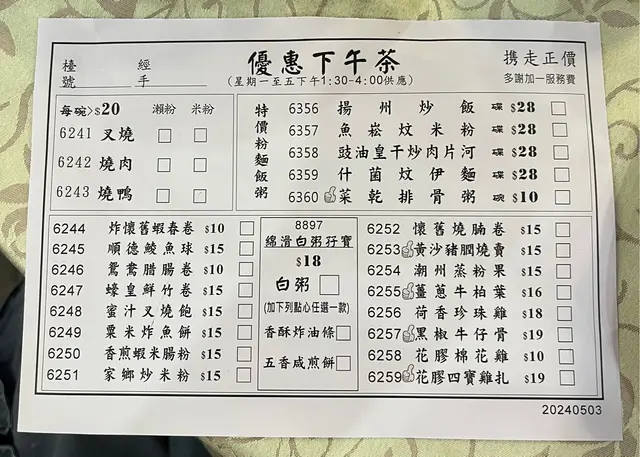 檯號______ 經手______
優惠下午茶
(星期一至五下午1:30-4:00供應)
携走正價
多謝加一服務費
每碗>$20 瀨粉 米粉
6241 叉燒
6242 燒肉
6243 燒鴨
特價粉麵飯粥
6356 揚州炒飯 碟 $28
6357 魚崧炆米粉 碟 $28
6358 豉油皇干炒肉片河 碟 $28
6359 什菌炆伊麵 碟 $28
6360 菜乾排骨粥 碗 $10
6244 炸懷舊蝦春卷 $10
6245 順德鯪魚球 $15
6246 鴛鴦腊腸卷 $10
6247 蠔皇鮮竹卷 $15
6248 蜜汁叉燒飽 $15
6249 粟米炸魚餅 $15
6250 香煎蝦米腸粉 $15
6251 家鄉炒米粉 $15
8897
綿滑白粥孖寶
$18
白粥
(加下列點心任選一款)
香酥炸油條
五香咸煎餅
6252 懷舊燒腩卷 $15
6253 黃沙豬膶燒賣 $15
6254 潮州蒸粉果 $15
6255 薑蔥牛柏葉 $16
6256 荷香珍珠雞 $18
6257 黑椒牛仔骨 $19
6258 花膠棉花雞 $10
6259 花膠四寶雞扎 $19
20240503